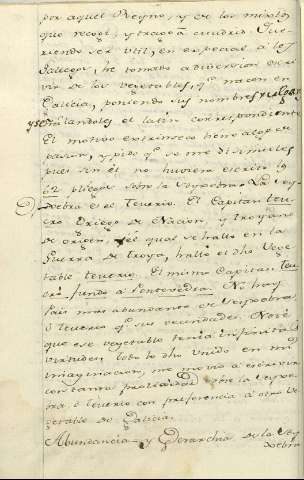 por aquel Reyno, y de los mixtos,
que recogí, y traxe a ciudad. Que-
riendo ser util, en especial a los
Gallegos, he tomado a diversion escri-
vir de los vegetables, qe nacen en
Galicia, poniendo sus nombres vulgares
y señalandoles el latin correspondiente
El motivo extrinseco heno al
pasar, y pido qe se me disimule
pues sin el no huviera escrito
62 pliegos sobre la Seixebra. La Sey-
xebra es el Teucrio. El Capitan teu-
cro Griego de Nacion, y troyano
de origen, el qual se hallo en la
Guerra de Troya, hallo el dho Vege-
table teucrio. El mismo Capitan teu-
cro fundo a Pontevedra. No hay
Pais mas abundante de Seyxebra
o teucrio qe sus vecindades. Noté
que ese vegetable tenia infinitas
virtudes, todo lo dho unido en mi
imaginacion, me movio a escrivir
con tanta prolixidad sobre la Seyxe-
bra, o teucrio con preferencia a otro Ve-
getable de Galicia.
Abundancia y Gerarchia de la Sey
xebra